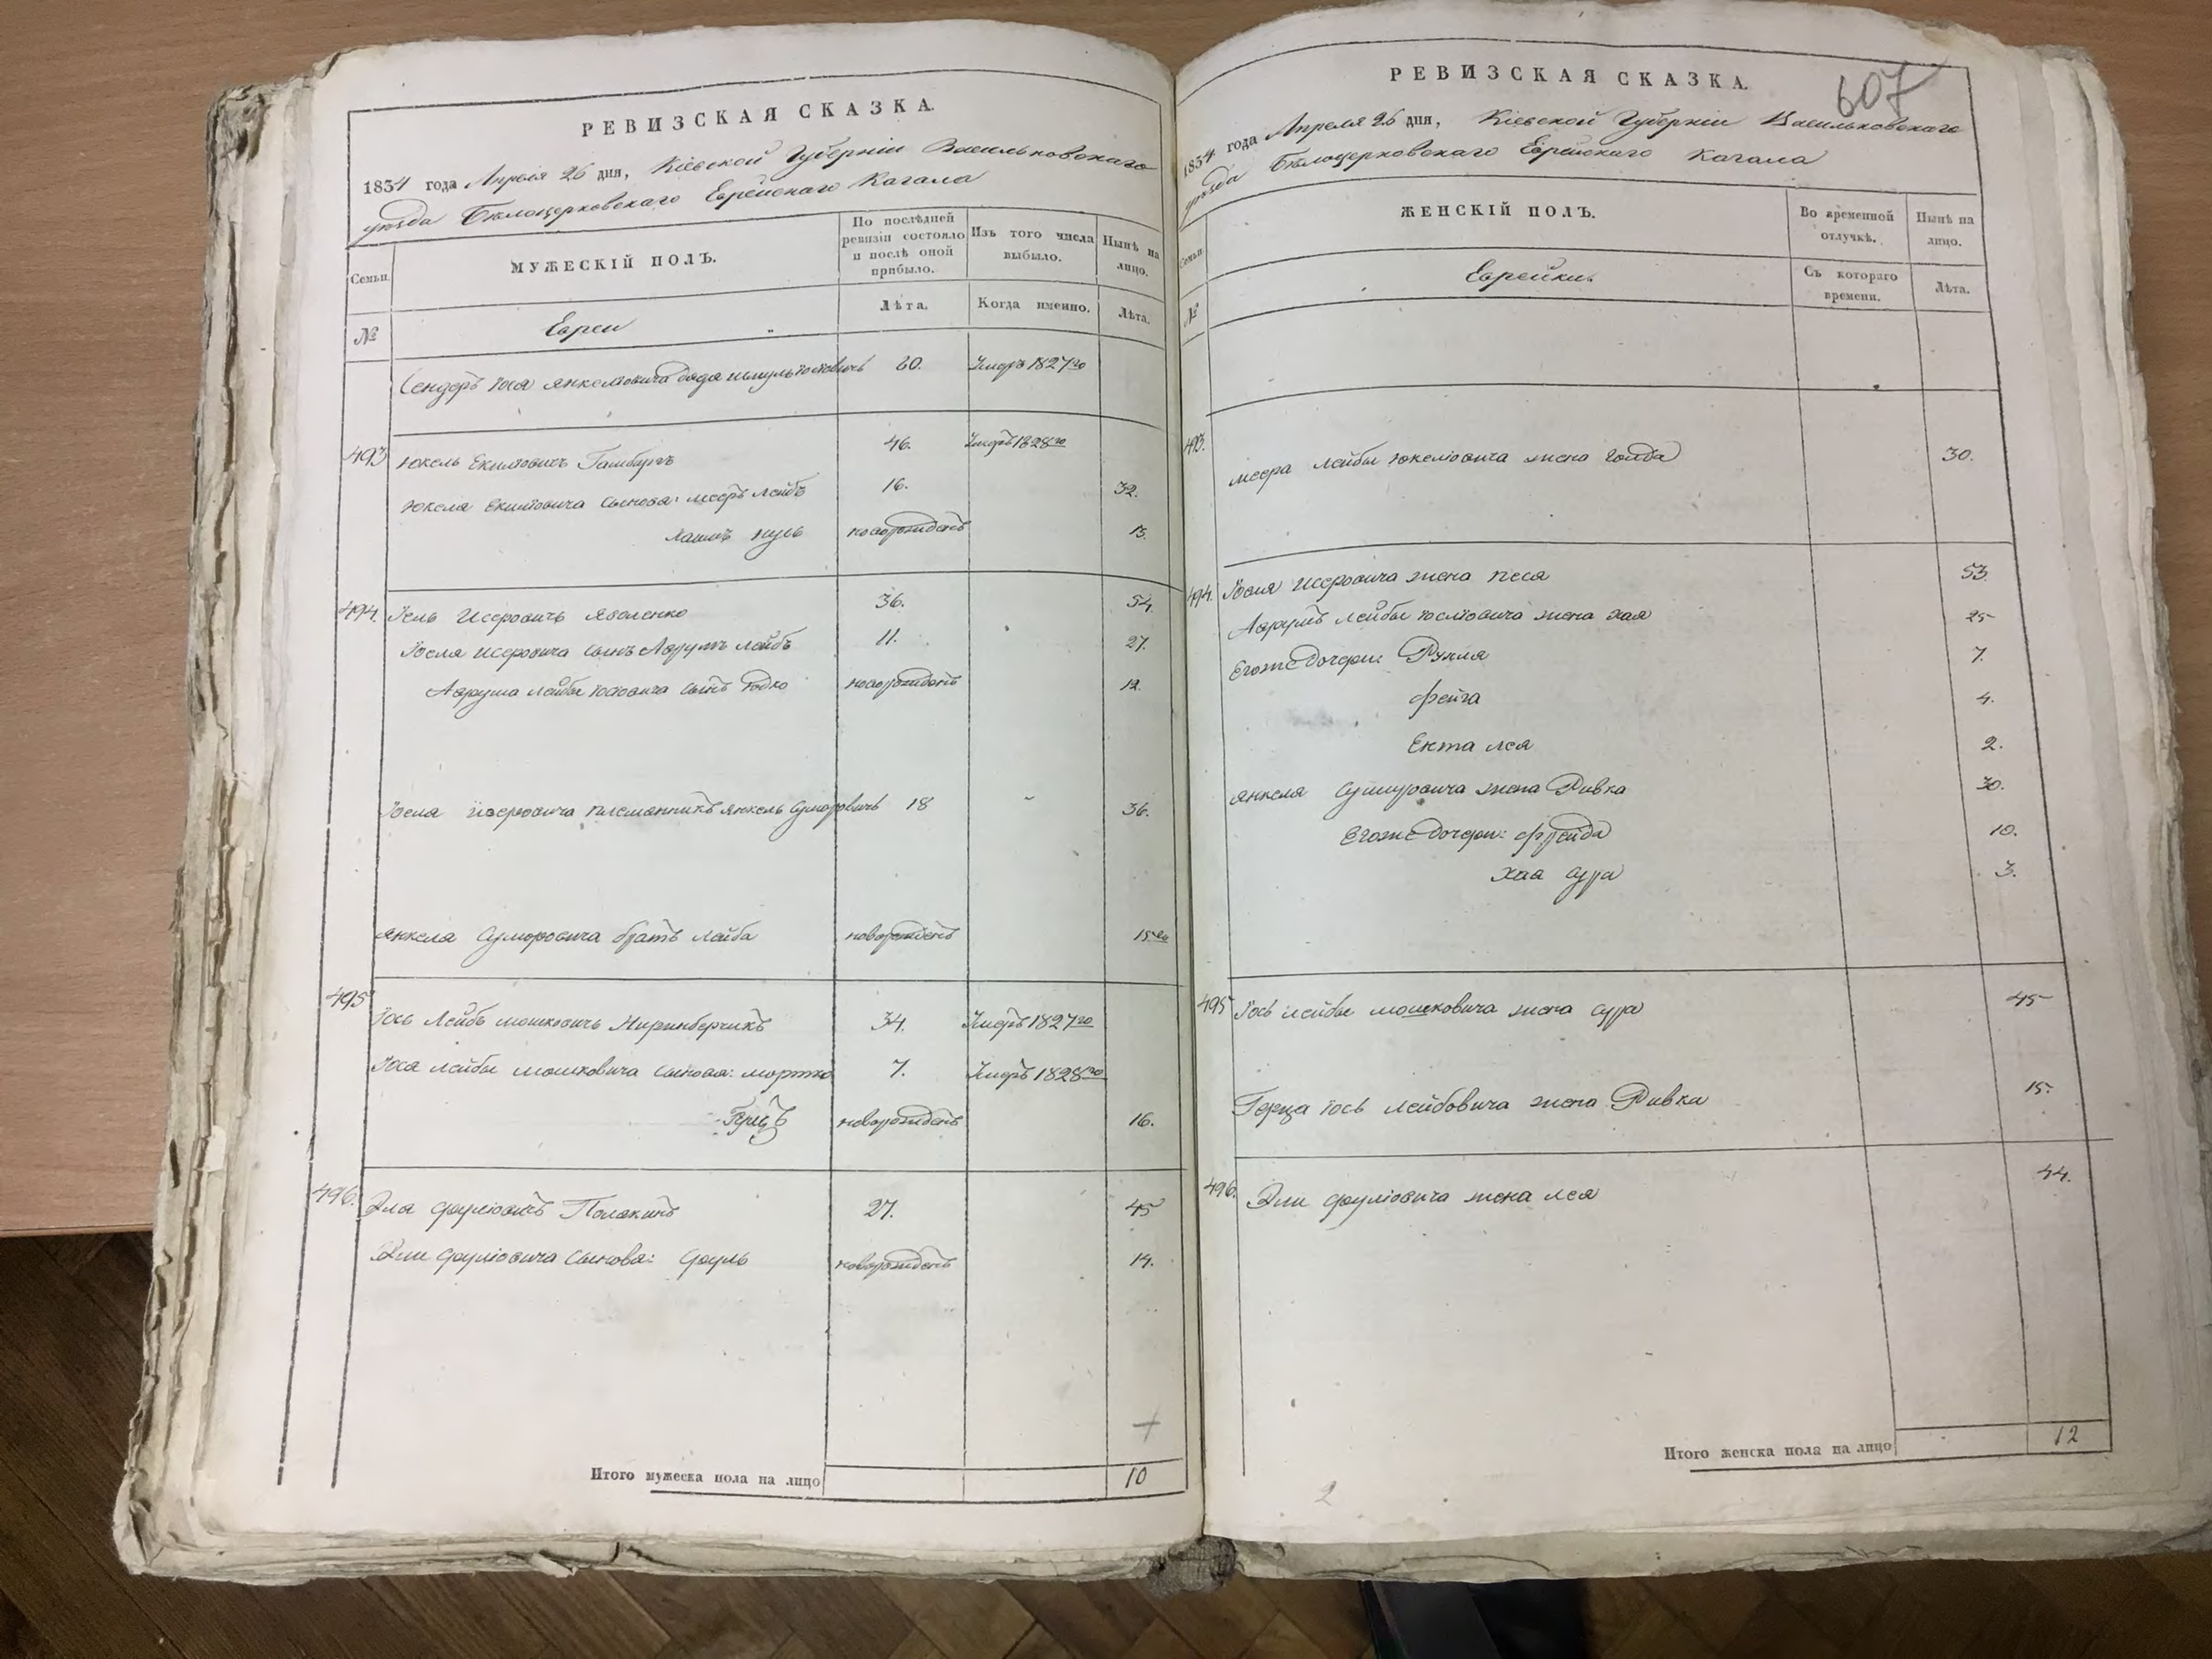 РЕВИЗСКАЯ СКАЗКА.
1834 года Апреля 26 дня, Кіевской Губерніи Васильковскаго
уѣзда Бѣлоцерковскаго Еврейскаго Кагала
Семьи.
МУЖЕСКІЙ ПОЛЪ.
По послѣдней ревизіи состояло и послѣ оной прибыло.
Изъ того числа выбыло.
Нынѣ на лицо.
№
Евреи
Лѣта.
Когда именно.
Лѣта.
Сендеръ Іося Янкеліовича дядя 60. Умеръ 1827го
493 Юкель Екиліовичъ Гамбургъ 46. Умеръ 1828го
Юкеля Екиліовича сыновя: Мееръ Лейбъ 16. 32.
новорожденъ 15.
494. Іосль Исеровичъ Яволенко 36. 54.
Іосля Исеровича сынъ Аврумъ Лейбъ 11. 27.
Аврума Лейбы Іосіовича сынъ Юдко новорожденъ 12.
Іосля Исеровича племянникъ Янкель 18 36.
Янкеля братъ Лейба новорожденъ 15го
495 Іось Лейбъ Мошковичъ Ниринберчикъ 34. Умеръ 1827го
Іося Лейбы Мошковича сыновя: Мортко 7. Умеръ 1828го
Герцъ новорожденъ 16.
496. Эля Сруліовичъ Полякинъ 27. 45
Эли Сруліовича сыновя: Сруль новорожденъ 14.
Итого мужеска пола на лицо
10
607
РЕВИЗСКАЯ СКАЗКА.
1834 года Апреля 26 дня, Кіевской Губерніи Васильковскаго
уѣзда Бѣлоцерковскаго Еврейскаго Кагала
Семьи.
ЖЕНСКІЙ ПОЛЪ.
Во временной отлучкѣ.
Нынѣ на лицо.
№
Еврейки.
Съ котораго времени.
Лѣта.
493. Меера Лейбы Юкеліовича жена Голда 30.
494. Іосля Исеровича жена Песя 53.
Аврумъ Лейбы Іосліовича жена Хая 25
Егожъ дочери: Рухля 7.
Фейга 4.
Ента Лея 2.
Янкеля жена Ривка 30.
Егожъ дочери: Фрейда 10.
Хая Сура 3.
495 Іось Лейбы Мошковича жена Сура 45
Герца Іось Лейбовича жена Ривка 15.
496. Эли Сруліовича жена Лея 44.
Итого женска пола на лицо
12
2